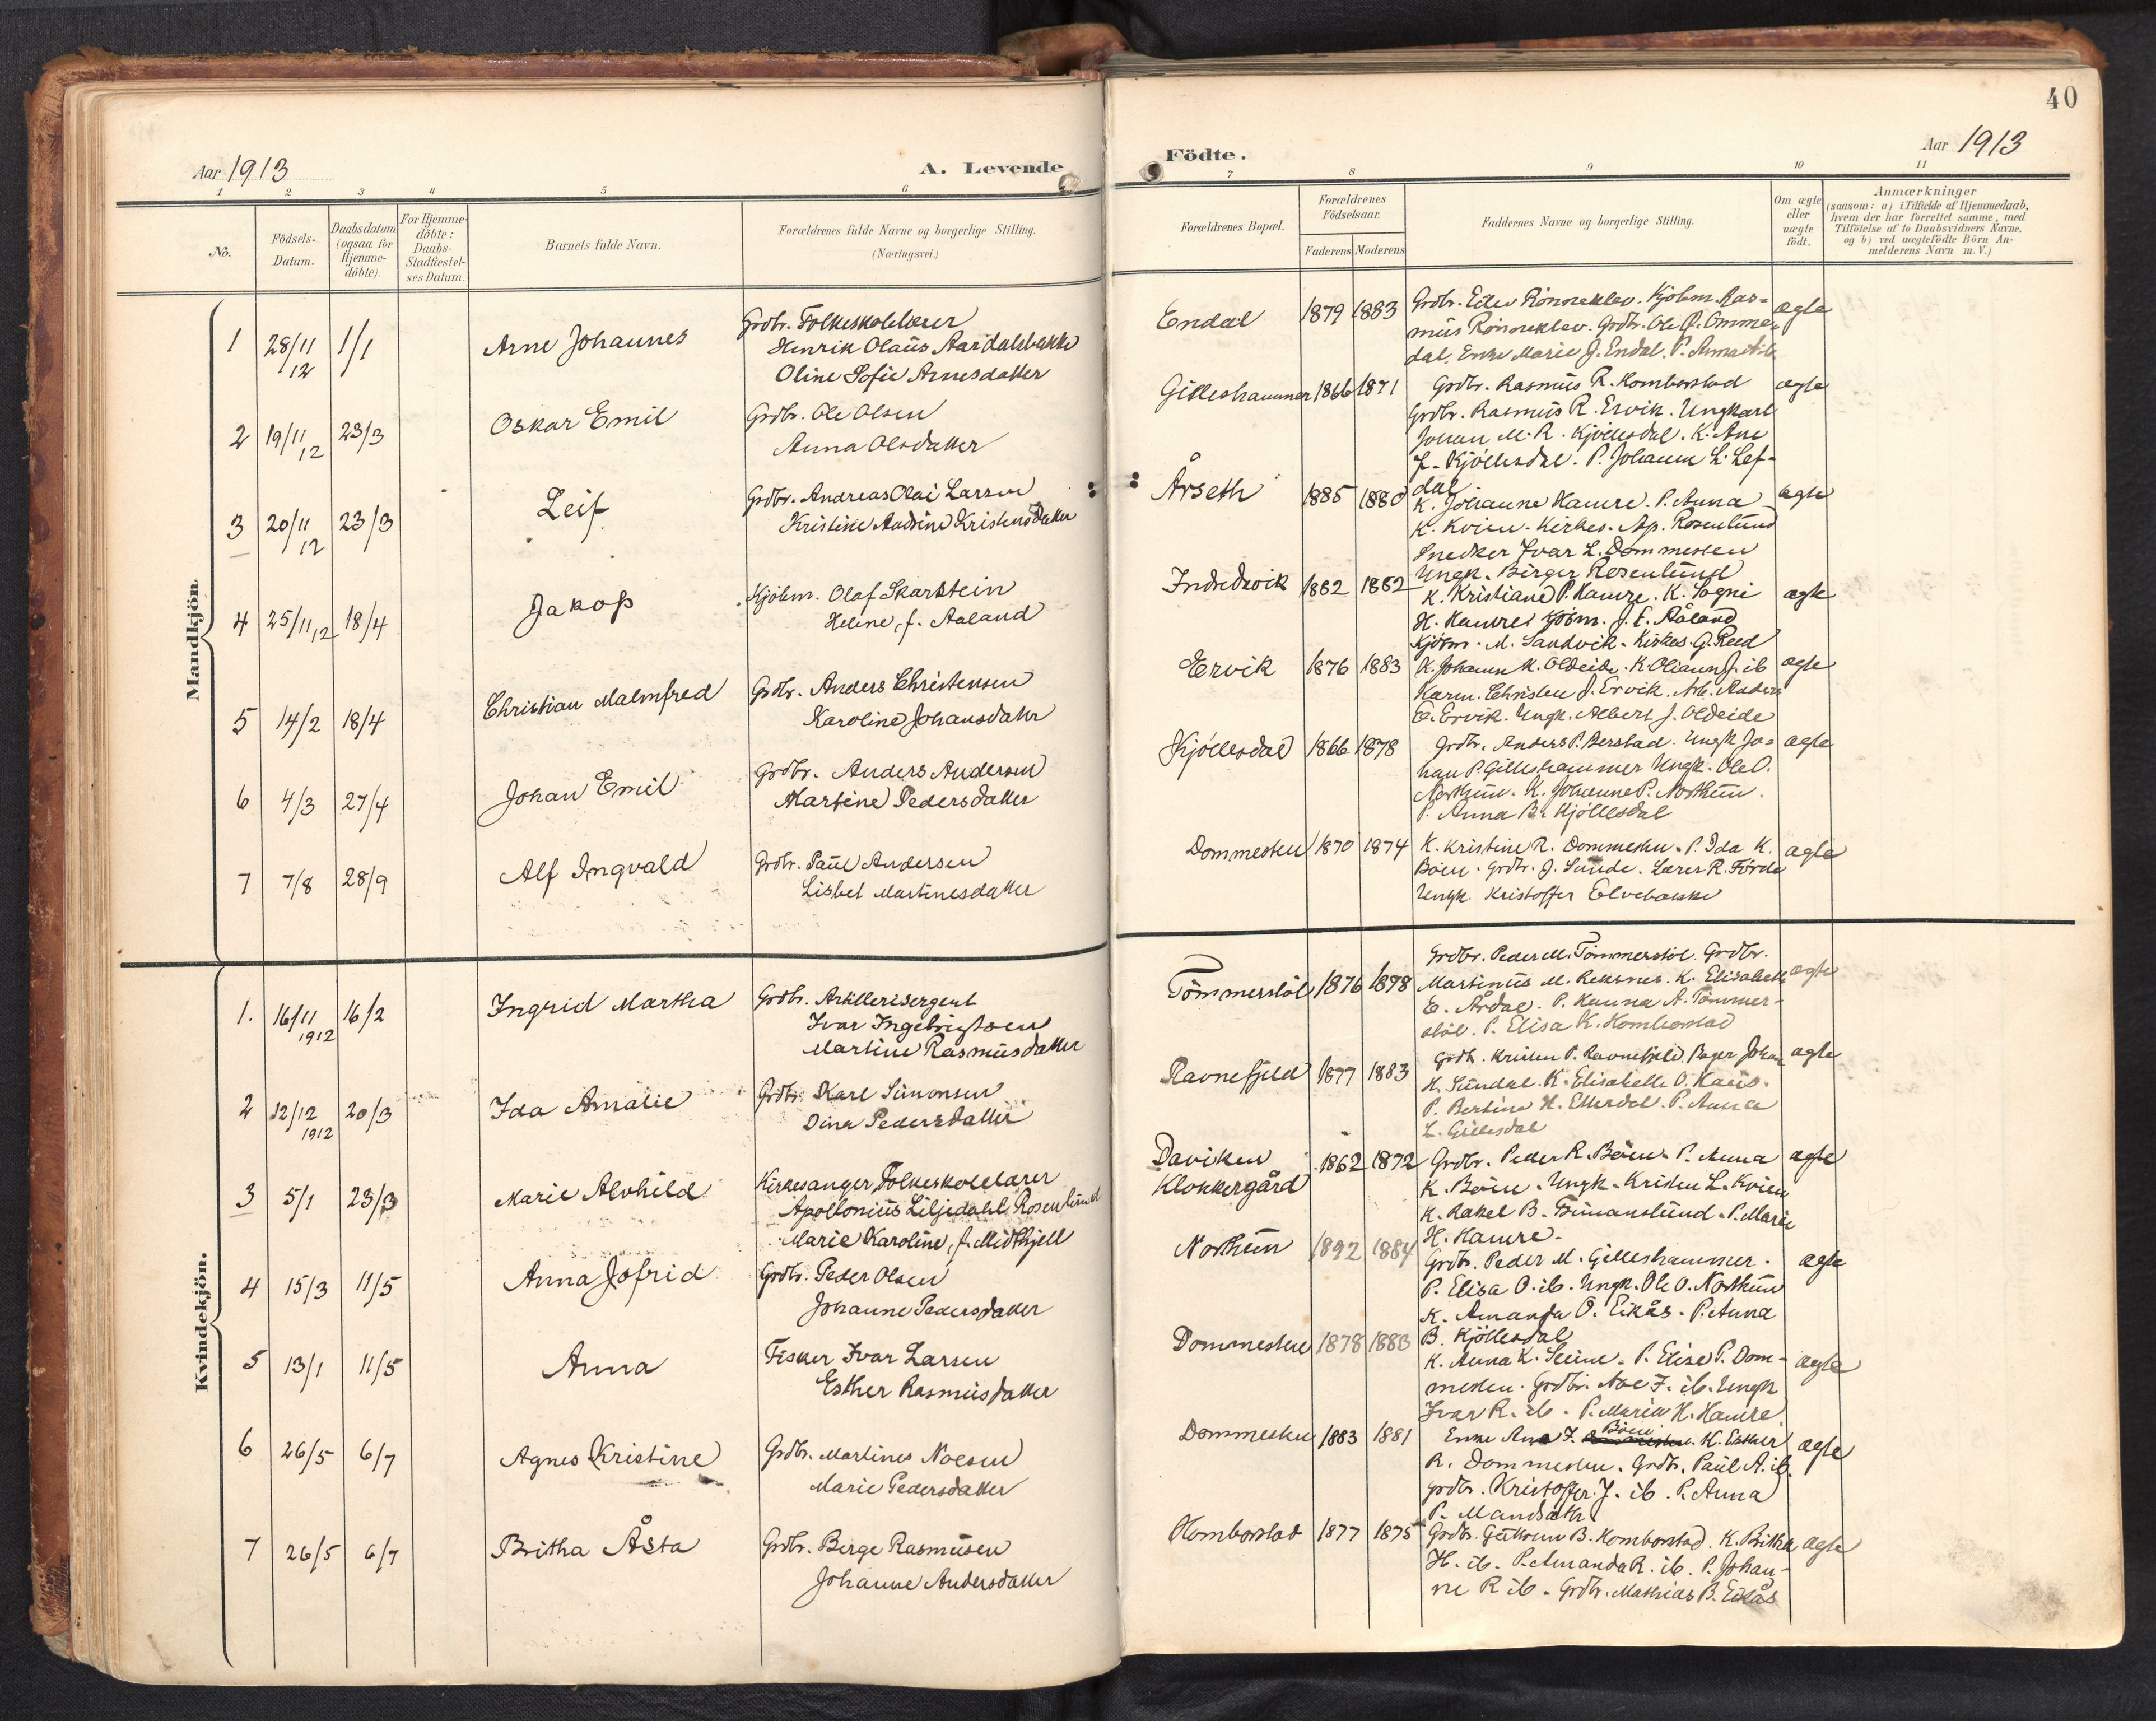 40
Aar 1913
A. Levende
Födte.
Aar 1913
1 2 3 4 5 6
7 8 9 10 11
No.
Födsels-Datum.
Daabsdatum (ogsaa for Hjemmedöbte).
For Hjemmedöbte: Daabs-Stadfæstelses Datum.
Barnets fulde Navn.
Forældrenes fulde Navne og borgerlige Stilling.
(Næringsvei.)
Forældrenes Bopæl.
Forældrenes Födselsaar.
Faderens Moderens
Faddernes Navne og borgerlige Stilling.
Om ægte eller uægte födt.
Anmærkninger
(saasom: a) i Tilfælde af Hjemmedaab, hvem der har forrettet samme, med Tilföielse af to Daabsvidners Navne, og b) ved uægtefödte Börn Anmelderens Navn m. V.)
Mandkjön.
1 28/11 12 1/1 Arne Johannes Grdbr. Folkeskolelærer
Henrik Olaus Aardalsbakke
Oline Sofie Arnesdatter
Endal 1879 1883 Grdbr. Eder Rönneklev. Kjöbm. Ras- ægte
mus Rönneklev. Grdbr. Ole Ø. Omme-
dal. Enke Marie J. Endal. P. Anna A. ib
2 19/11 12 23/3 Oskar Emil Grdbr. Ole Olsen
Anna Olsdatter
Gilleshammer 1866 1871 Grdbr. Rasmus R. Homborstad ægte
Grdbr. Rasmus R. Ervik. Ungkarl
Johan M. R. Kjöllesdal. K. Ane
J. Kjöllesdal. P. Johanne L. Lef-
dal
3 20/11 12 23/3 Leif Grdbr. Andreas Olai Larsen
Kristine Andrine Kristensdatter
Årseth 1885 1880 K. Johanne Hamre. P. Anna ægte
K. Kvien. Kirkes. Ap. Rosenlund
Snedker Ivar L. Dommesten
Ungk. Birger Rosenlund
4 25/11 12 18/4 Jakop Kjöbm. Olaf Skarstein
Heline, f. Aaland
Indredvik 1882 1882 K. Kristiane P. Hamre. K. Sogni ægte
H. Hamre. Kjöbm. J. E. Åland
Kjöbm. M. Sandvik. Kirkes. G. Reed
5 14/2 18/4 Christian Malmfred Grdbr. Anders Christensen
Karoline Johansdatter
Ervik 1876 1883 K. Johanne M. Oldeide. K. Olianna J. ib ægte
Kaarm. Christen J. Ervik. Arb. Anders
E. Ervik. Ungk. Albert J. Oldeide
6 4/3 27/4 Johan Emil Grdbr. Anders Andersen
Martine Pedersdatter
Kjöllesdal 1866 1878 Grdbr. Anders P. Berstad. Ungk. Jo- ægte
han P. Gilleshammer Ungk. Ole O.
Northun. K. Johanne P. Northun.
P. Anna B. Kjöllesdal
7 7/8 28/9 Alf Ingvald Grdbr. Paul Andersen
Lisbet Martinesdatter
Dommesten 1870 1874 K. Kristine R. Dommesten. P. Ida K. ægte
Böen. Grdbr. J. Sunde. Lærer R. Förde
Ungk. Kristoffer Elvebakke
Kvindekjön.
1. 16/11 1912 16/2 Ingrid Martha Grdbr. Artillerisergent
Ivar Ingebrigtsen
Martine Rasmusdatter
Tömmerstöl 1876 1878 Grdbr. Peder M. Tömmerstöl. Grdbr.
Martinus M. Reksnes. K. Elisabeth ægte
E. Årdal. P. Hanna A. Tömmer-
stöl. P. Elisa K. Homborstad
2 12/12 1912 20/3 Ida Amalie Grdbr. Karl Simonsen
Dina Pedersdatter
Ravnefjeld 1877 1883 Grdb. Kristen P. Ravnefjeld. Bager Johan ægte
H. Sundal. K. Elisabeth O. Haus.
P. Bertine H. Ellerdal. P. Anna
L. Gillesdal
3 5/1 23/3 Marie Alvhild Kirkesanger, Folkeskolelærer
Apollonius Liljedahl Rosenlund
Marie Karoline, f. Midthjell
Daviken Klokkergård 1862 1872 Grdbr. Peder R. Böen. P. Anna ægte
K. Böen. Ungk. Kristen L. Kvien
K. Rakel B. Tsimanslund. P. Marie
H. Hamre.
4 15/3 11/5 Anna Jofrid Grdbr. Peder Olsen
Johanne Pedersdatter
Northun 1892 1884 Grdbr. Peder M. Gilleshammer. ægte
P. Elisa O. ib. Ungk. Ole O. Northun
K. Amanda O. Eikås. P. Anna
B. Kjöllesdal
5 13/1 11/5 Anna Fisker Ivar Larsen
Esther Rasmusdatter
Dommesten 1878 1883 K. Anna K. Seine. P. Elise P. Dom- ægte
mesten. Grdbr. Noe J. ib. Ungk
Ivar R. ib. P. Maria H. Hamre
6 26/5 6/7 Agnes Kristine Grdbr. Martines Noesen
Marie Pedersdatter
Dommesten 1883 1881 Enke Ane J. Böen. K. Esther ægte
R. Dommesten. Grdbr. Paul A. ib.
Grdbr. Kristoffer J. ib. P. Anna
P. Mandsæth
7 26/5 6/7 Britha Åsta Grdbr. Berge Rasmusen
Johanne Andersdatter
Homborstad 1877 1875 Grdbr. Guttorm B. Homborstad. K. Britha ægte
H. ib. P. Amanda R. ib. P. Johan-
ne R. ib. Grdbr. Mathias B. Eikås